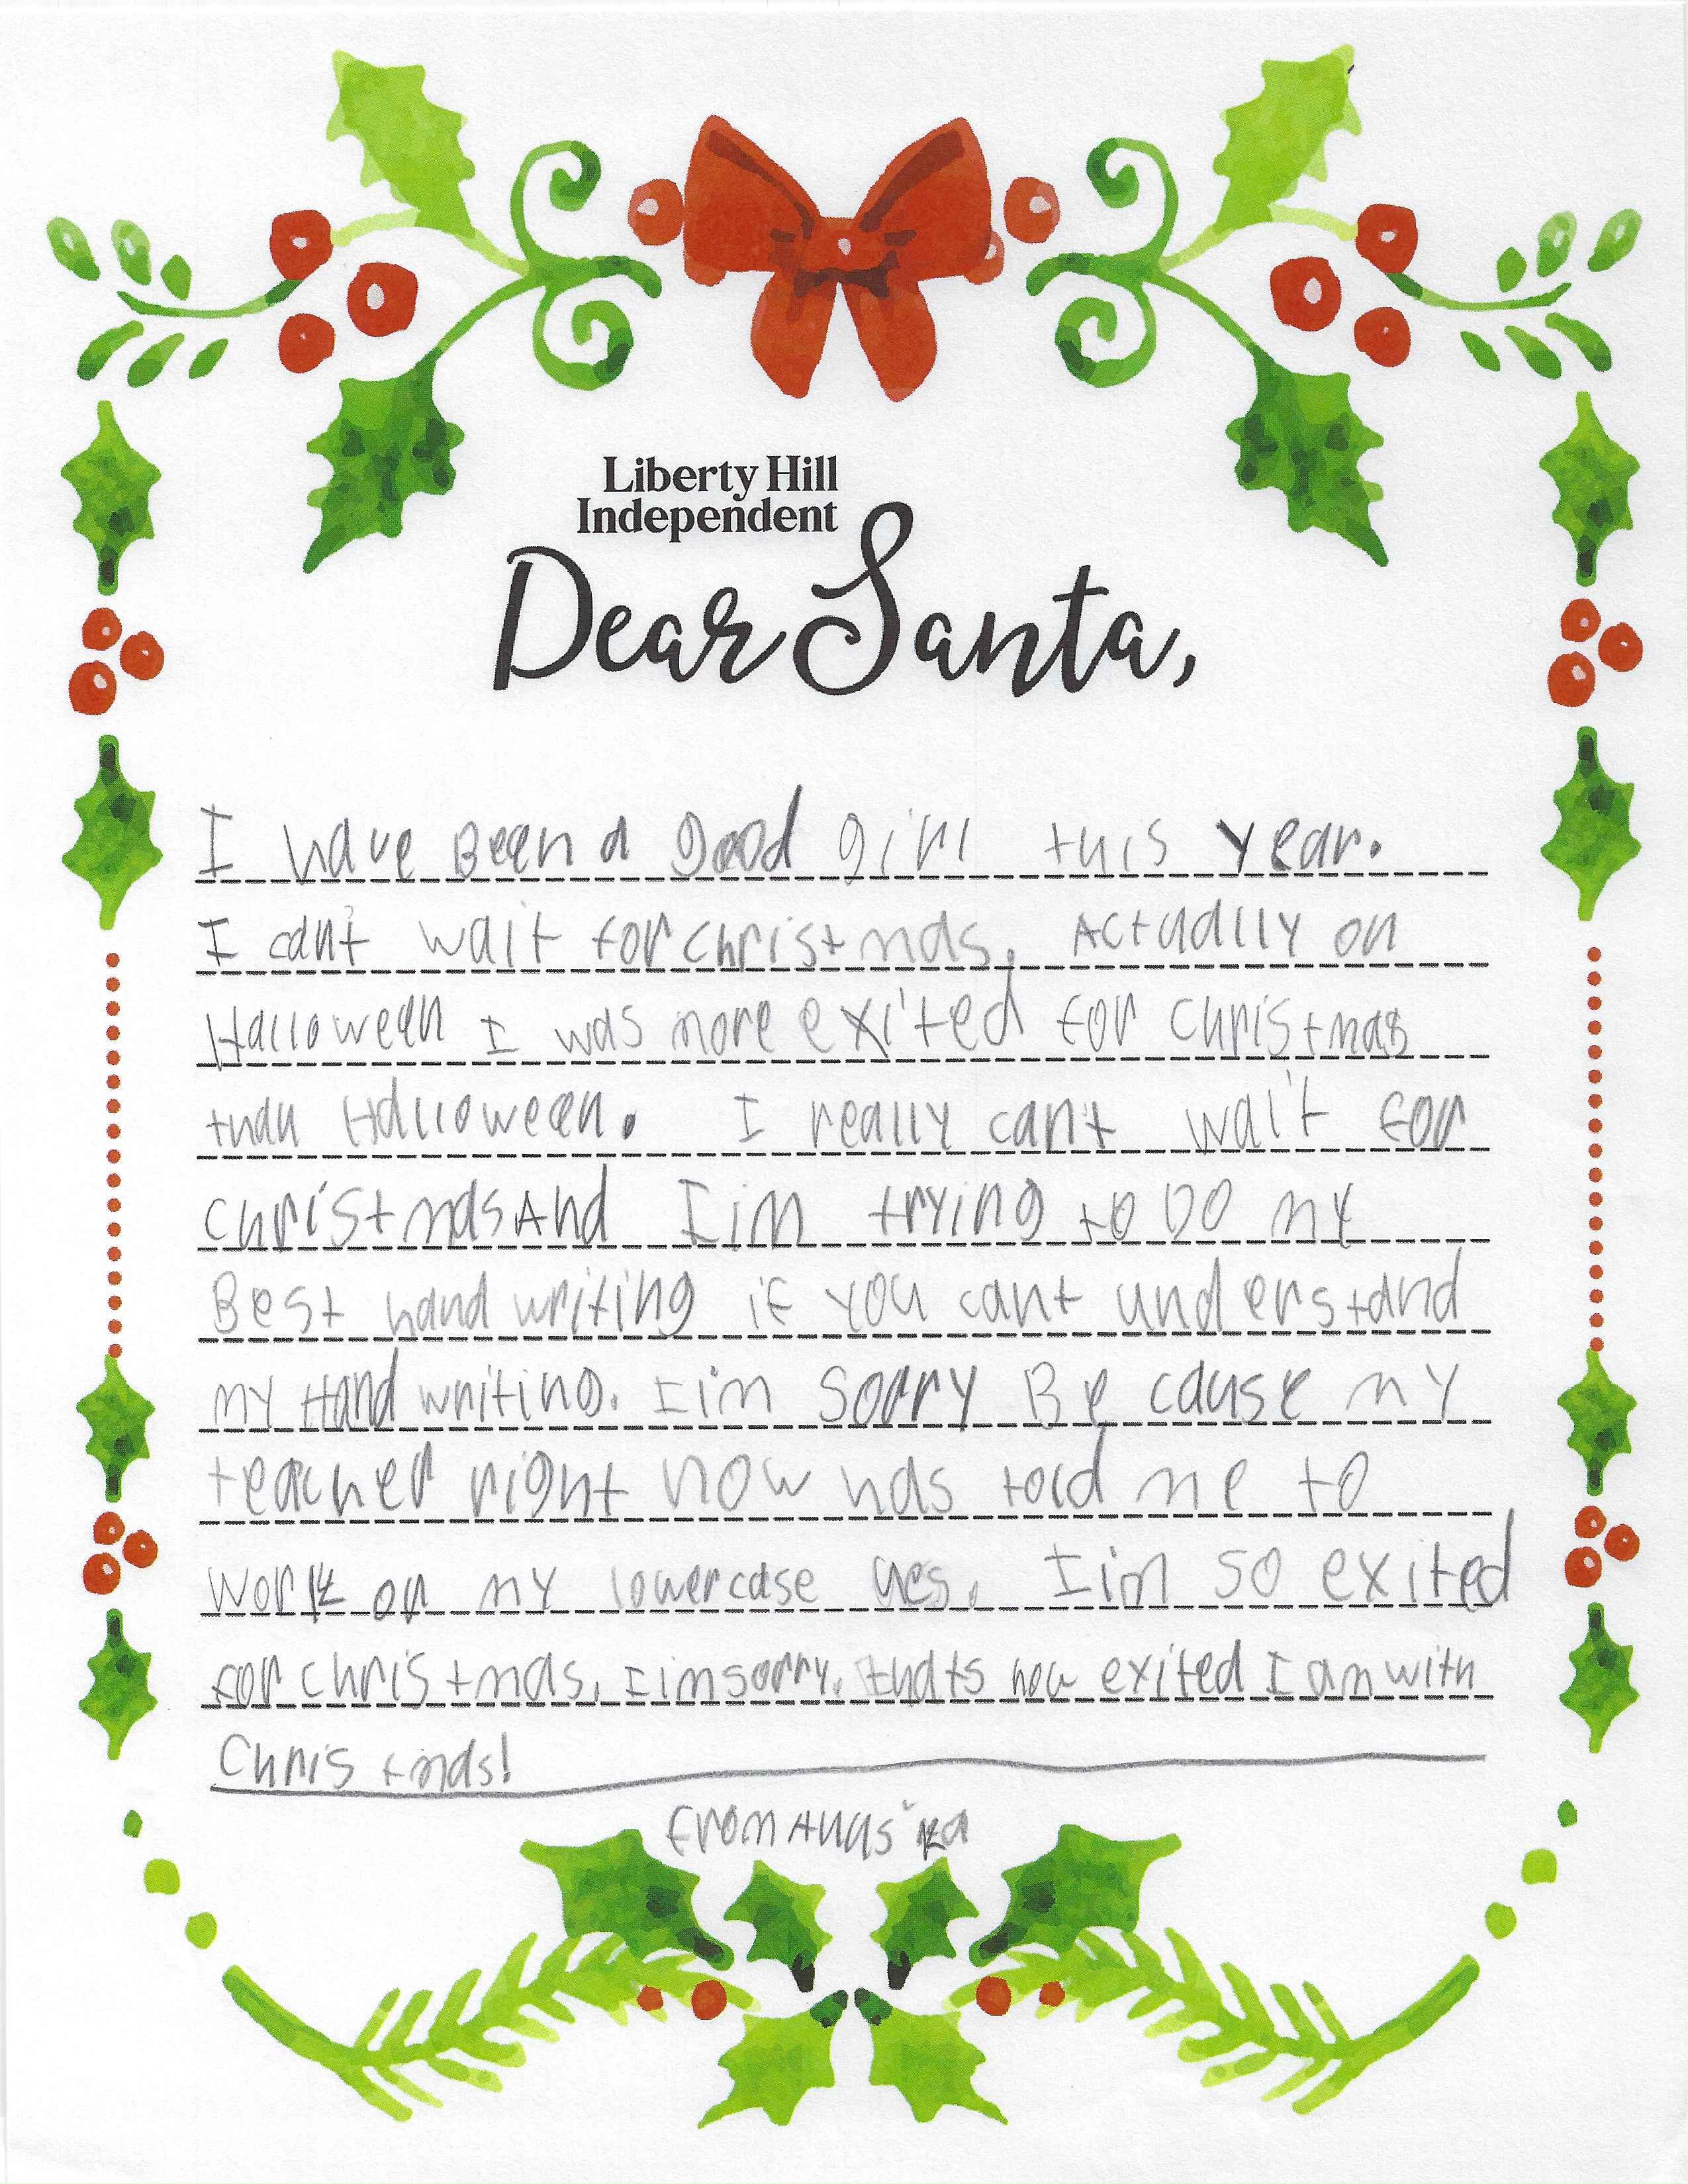 Liberty Hill
Independent
Dear Santa,
I have Been a good girl this year.
I can't wait for christmas. Actually on
Halloween I was more exited for christmas
than Halloween. I really can't wait for
christmas And I im trying to DO my
Best hand writing if you cant understand
my Hand writing. I im sorry Be cause my
teacher right now has told me to
work on my lowercase. I im so exited
for christmas, I im sorry. thats how exited I am with
Christmas!
from